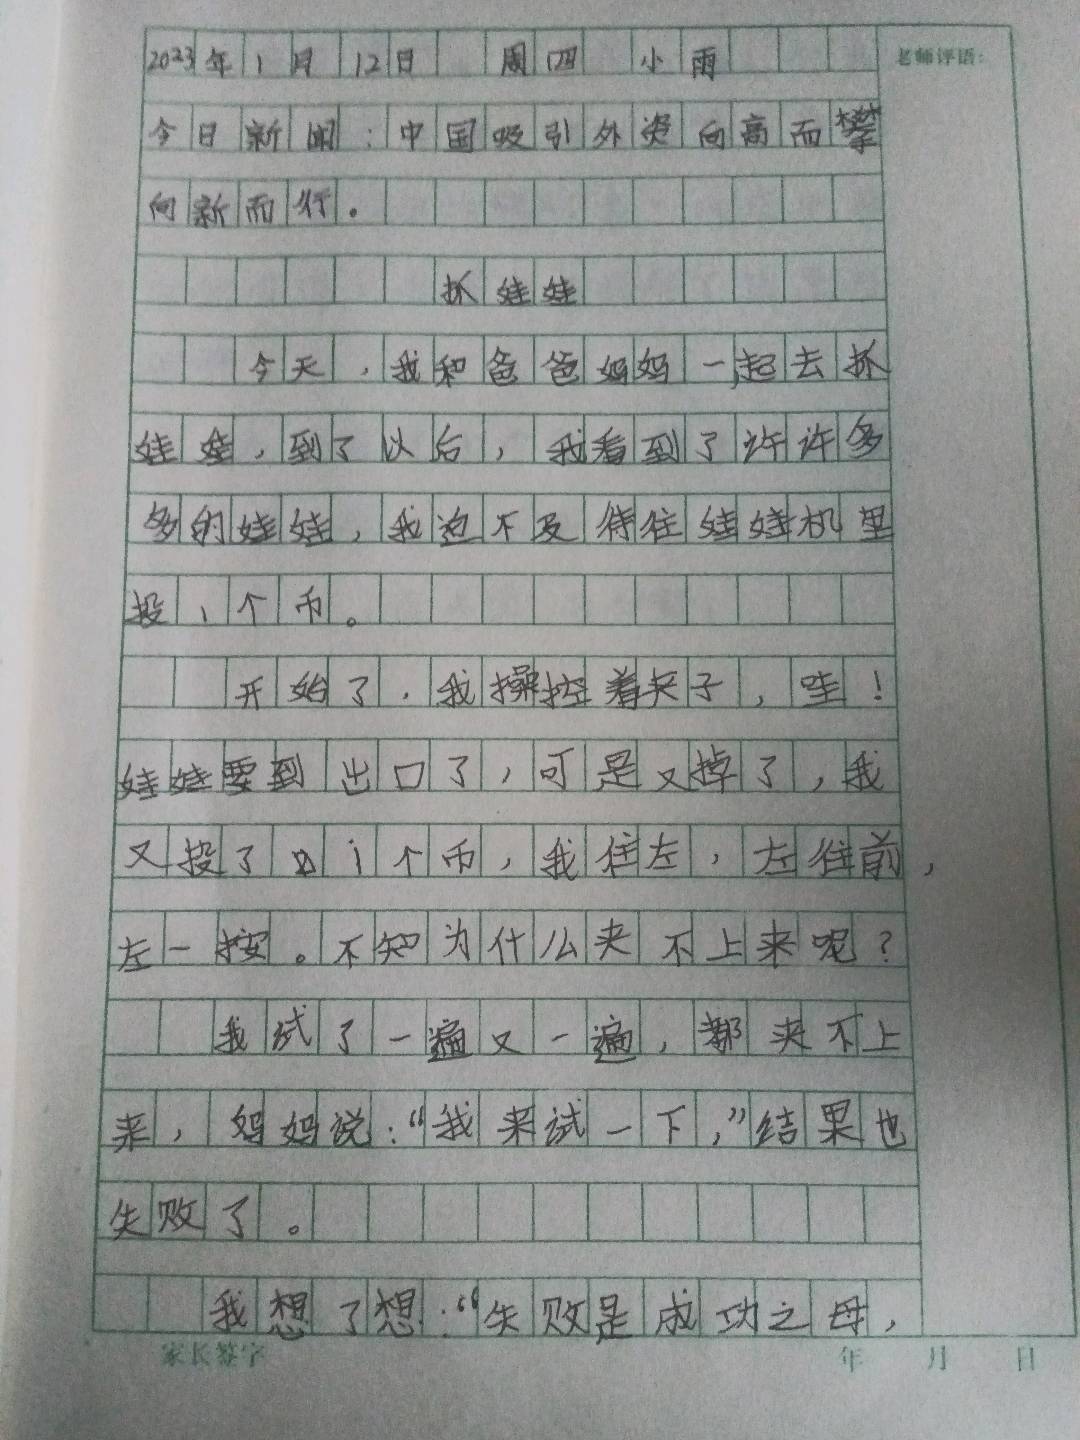 2023年1月12日 周四 小雨
老师评语:
今日新闻:中国吸引外资向高而攀
向新而行。
抓娃娃
今天,我和爸爸妈妈一起去抓
娃娃,到了以后,我看到了许许多
多的娃娃,我迫不及待往娃娃机里
投1个币。
开始了.我操控着夹子,哇!
娃娃要到出口了,可是又掉了,我
又投了1个币,我往左,左往前,
左一按。不知为什么夹不上来呢?
我试了一遍又一遍,都夹不上
来,妈妈说:“我来试一下,”结果也
失败了。
我想了想:“失败是成功之母,
家长签字 年 月 日